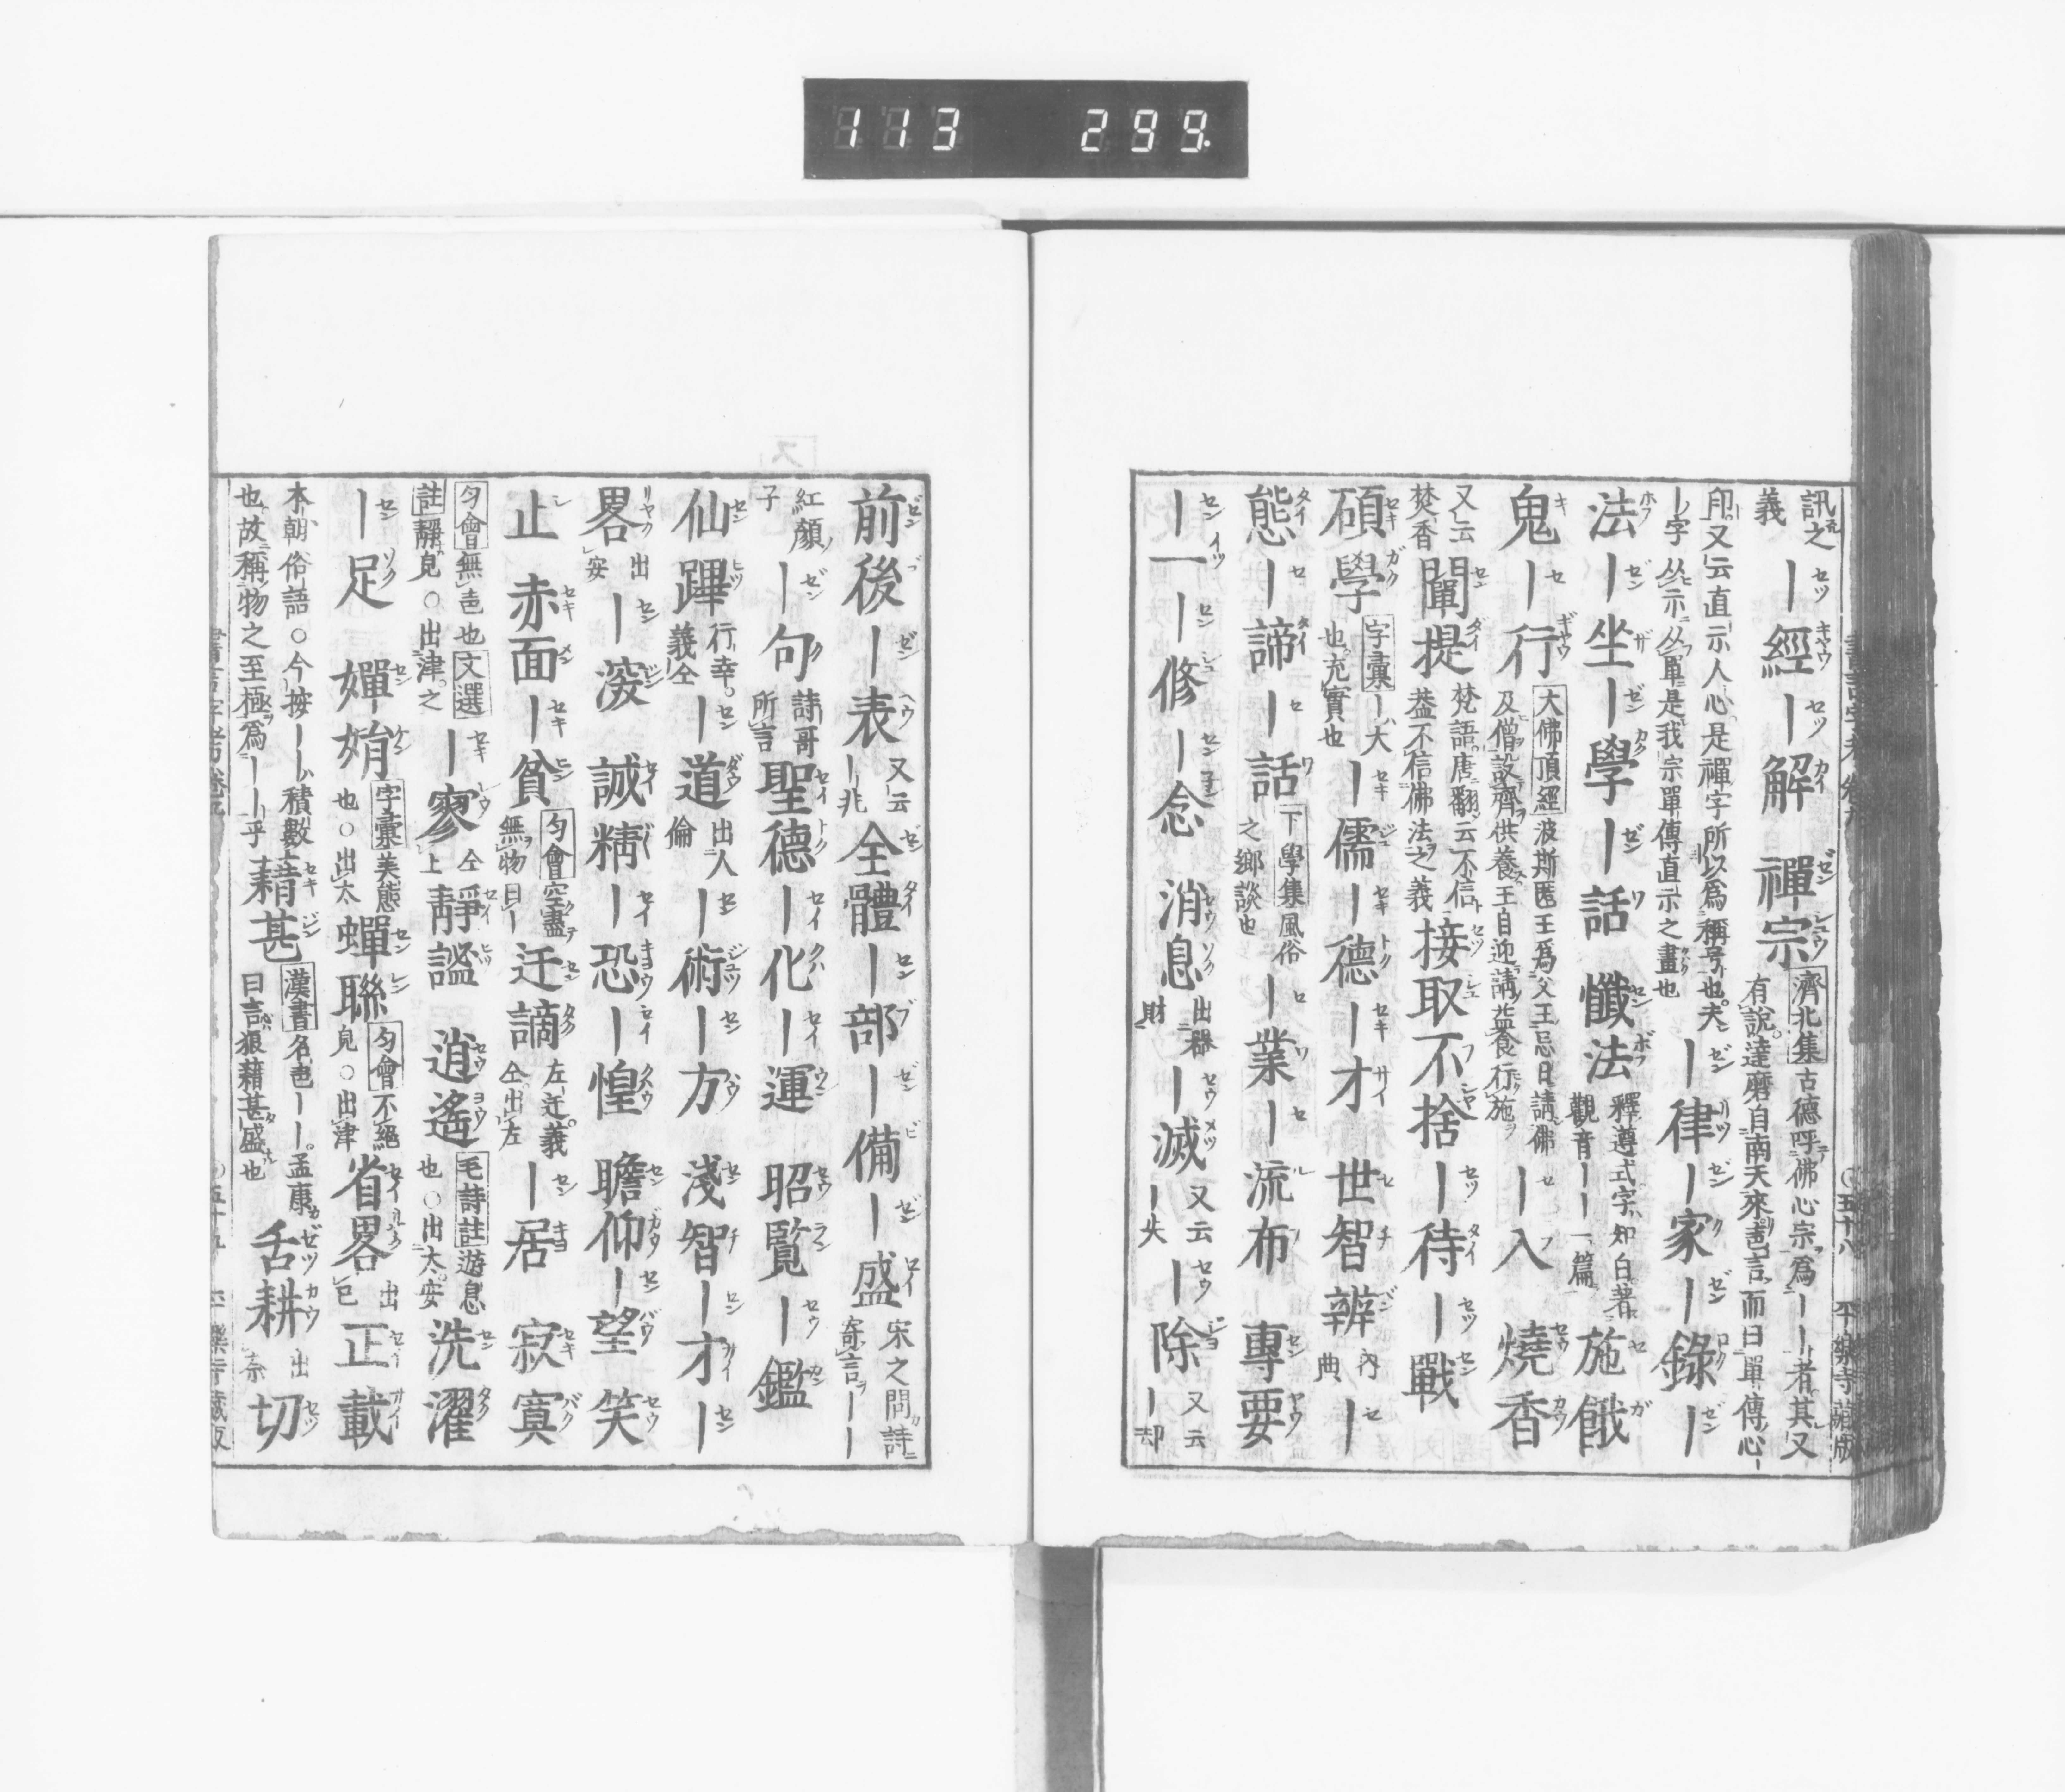 113 299.
訊之義 ｜經 ｜解 禪宗 濟北集古德呼佛心宗爲｜｜者其又有說達磨自南天來言而曰單傳心｜
印又云直示人心是禪字所以爲稱号也夫｜字从示从單是我宗單傳直示之畫也 ｜律 ｜家 ｜錄 ｜
法 ｜坐 ｜學 ｜話 懺法 釋遵式字知白著觀音｜｜一篇 施餓
鬼 ｜行 大佛頂經波斯匿王爲父王忌日請佛及僧設齊供養王自迎請 ｜入 燒香
又云焚香 闡提 梵語唐翻云不信蓋不信佛法之義 接取不捨 ｜待 ｜戰
碩學 字彙｜大也充實也 ｜儒 ｜德 ｜才 世智辨 內典 ｜
態 ｜諦 ｜話 下學集風俗之鄉談也 ｜業 ｜流布 專要
｜一 ｜修 ｜念 消息 出器財 ｜滅 又云｜失 ｜除 又云｜却
五十八 平樂寺藏版
前後 ｜表 又云｜兆 全體 ｜部 ｜備 ｜盛 宋之問詩寄言｜｜
紅顏子 ｜句 詩哥所言 聖德 ｜化 ｜運 昭覧 ｜鑑
仙蹕 行幸義仝 ｜道 出人倫 ｜術 ｜方 淺智 ｜才 ｜
畧 出安 ｜ 誠精 ｜恐 ｜惶 瞻仰 ｜望 笑
止 赤面 ｜貧 匀會空盡無物曰｜ 迁謫 左迁義仝出左 ｜居 寂寞
匀會無㠯也文選註靜見○出津之 ｜寥 仝上 靜謐 逍遙 毛詩註遊息也○出太安 洗濯
｜足 嬋娟 字彙美態也○出太 蟬聯 匀會不絕見○出津 省畧 出㔾 正載
本朝俗語○今按｜｜積數也故稱物之至極爲｜｜乎 藉甚 漢書名㠯｜｜孟康曰言狼藉甚盛也 舌耕 出 切